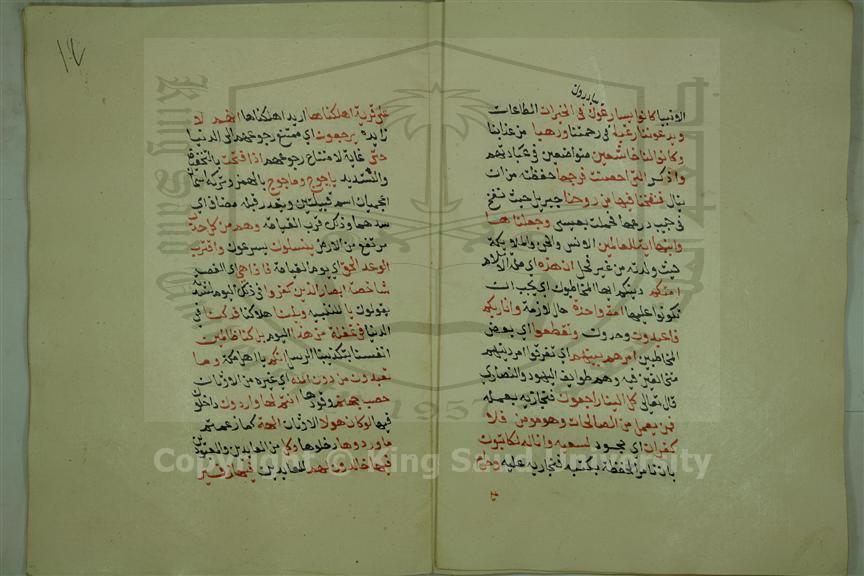 يبادرون
الانبيا كانوا يسارعون في الخيرات الطاعات
ويدعوننا رغبا في رحمتنا ورهبا من عذابنا
وكانوا لنا خاشعين متواضعين في عبادتهم
واذكر التي احصنت فرجها حفظته من ان
ينال فنفخنا فيها من روحنا جبريل حيث نفخ
في جيب درعها فحملت بعيسى وجعلناها
وابنها اية للعالمين الانس والجن والملايكة
حيث ولدته من غير فحل ان هذه اي ملة الاسلام
امتكم دينكم ايها المخاطبون اي يجب ان
تكونوا عليها امة واحدة حال لازمة وانا ربكم
فاعبدون وحدون وتقطعوا اي بعض
المخاطبين امرهم بينهم اي تفرقوا امر دينهم
متخالفين فيه وهم طوايف اليهود والنصارى
قال تعالى كل الينا راجعون فنجازيه بعمله
فمن يعمل من الصالحات وهو مومن فلا
كفران اي جحود لسعيه وانا له كاتبون
بان نامر الحفظة بكتبه فنجازيه عليه وحرام
على قرية اهلكناها اريد اهلها انهم لا
زايدة يرجعون اي ممتنع رجوعهم الى الدنيا
حتى غاية لامتناع رجوعهم اذا فتحت بالتخفيف
والتشديد ياجوج وماجوج بالهمز وتركه اسمان
اعجميان اسم قبيلتين ويقدر قبله مضاف اي
سدهما وذلك قرب القيامة وهم من كل حدب
مرتفع من الارض ينسلون يسرعون واقترب
الوعد الحق اي يوم القيامة فاذا هي اي القصة
شاخصة ابصار الذين كفروا في ذلك اليوم لشدته
يقولون يا للتنبيه ويلنا هلاكنا قد كنا في
الدنيا في غفلة من هذا اليوم بل كنا ظالمين
انفسنا بتكذيبنا الرسل انكم يا اهل مكة وما
تعبدون من دون الله اي غيره من الاوثان
حصب جهنم وقودها انتم لها واردون داخلون
فيها لو كان هولا الاوثان الهة كما زعمتم
ما وردوها دخلوها وكل من العابدين والمعبودين
فيها خالدون لهم للعابدين فيها زفير
Copyright © King Saud University
King Saud
1957